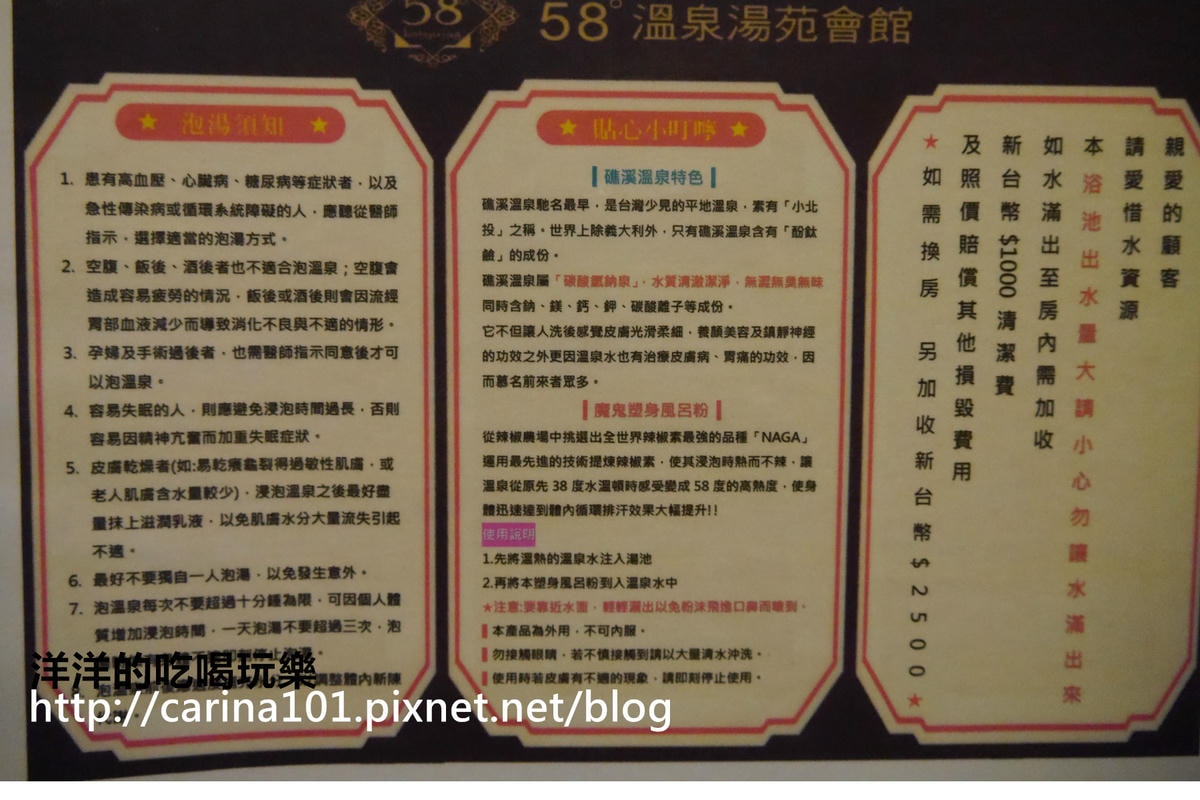 58
58°溫泉湯苑會館
★ 泡湯須知 ★
1. 患有高血壓、心臟病、糖尿病等症狀者，以及
急性傳染病或循環系統障礙的人，應聽從醫師
指示，選擇適當的泡湯方式。
2. 空腹、飯後、酒後者也不適合泡溫泉；空腹會
造成容易疲勞的情況，飯後或酒後則會因流經
胃部血液減少而導致消化不良與不適的情形。
3. 孕婦及手術過後者，也需醫師指示同意後才可
以泡溫泉。
4. 容易失眠的人，則應避免浸泡時間過長，否則
容易因精神亢奮而加重失眠症狀。
5. 皮膚乾燥者(如:易乾癢龜裂得過敏性肌膚，或
老人肌膚含水量較少)，浸泡溫泉之後最好盡
量抹上滋潤乳液，以免肌膚水分大量流失引起
不適。
6. 最好不要獨自一人泡湯，以免發生意外。
7. 泡溫泉每次不要超過十分鍾為限，可因個人體
質增加浸泡時間，一天泡湯不要超過三次，泡
調整體內新陳
★ 貼心小叮嚀 ★
礁溪溫泉特色
礁溪溫泉馳名最早，是台灣少見的平地溫泉，素有「小北
投」之稱。世界上除義大利外，只有礁溪溫泉含有「酚鈦
鹼」的成份。
礁溪溫泉屬「碳酸氫鈉泉」，水質清澈潔淨，無澀無臭無味
同時含鈉、鎂、鈣、鉀、碳酸離子等成份。
它不但讓人洗後感覺皮膚光滑柔細，養顏美容及鎮靜神經
的功效之外更因溫泉水也有治療皮膚病、胃痛的功效，因
而慕名前來者眾多。
魔鬼塑身風呂粉
從辣椒農場中挑選出全世界辣椒素最強的品種「NAGA」
運用最先進的技術提煉辣椒素，使其浸泡時熱而不辣，讓
溫泉從原先 38 度水溫頓時感受變成 58 度的高熱度，使身
體迅速達到體內循環排汗效果大幅提升!!
使用說明
1.先將溫熱的溫泉水注入湯池
2.再將本塑身風呂粉到入溫泉水中
★注意:要靠近水面，輕輕灑出以免粉沫飛進口鼻而嗆到。
本產品為外用，不可內服。
勿接觸眼睛，若不慎接觸到請以大量清水沖洗。
使用時若皮膚有不適的現象，請即刻停止使用。
親愛的顧客
請愛惜水資源
本浴池出水量大請小心勿讓水滿出來
如水滿出至房內需加收
新台幣$1000清潔費
及照價賠償其他損毀費用
★如需換房 另加收新台幣$2500★
洋洋的吃喝玩樂
http://carina101.pixnet.net/blog